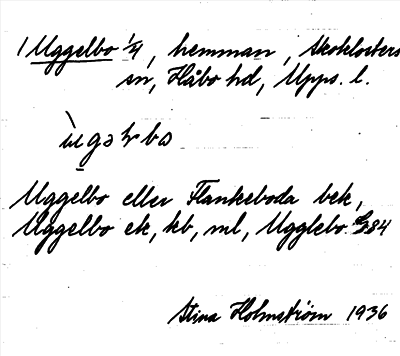 1 Uggelbo 1/4, hemman, Skoklosters
sn, Håbo hd, Upps. l.
Uggelbo eller Flankeboda bek,
Uggelbo ek, kb, ml, Ugglebo. GS84
Stina Holmström 1936